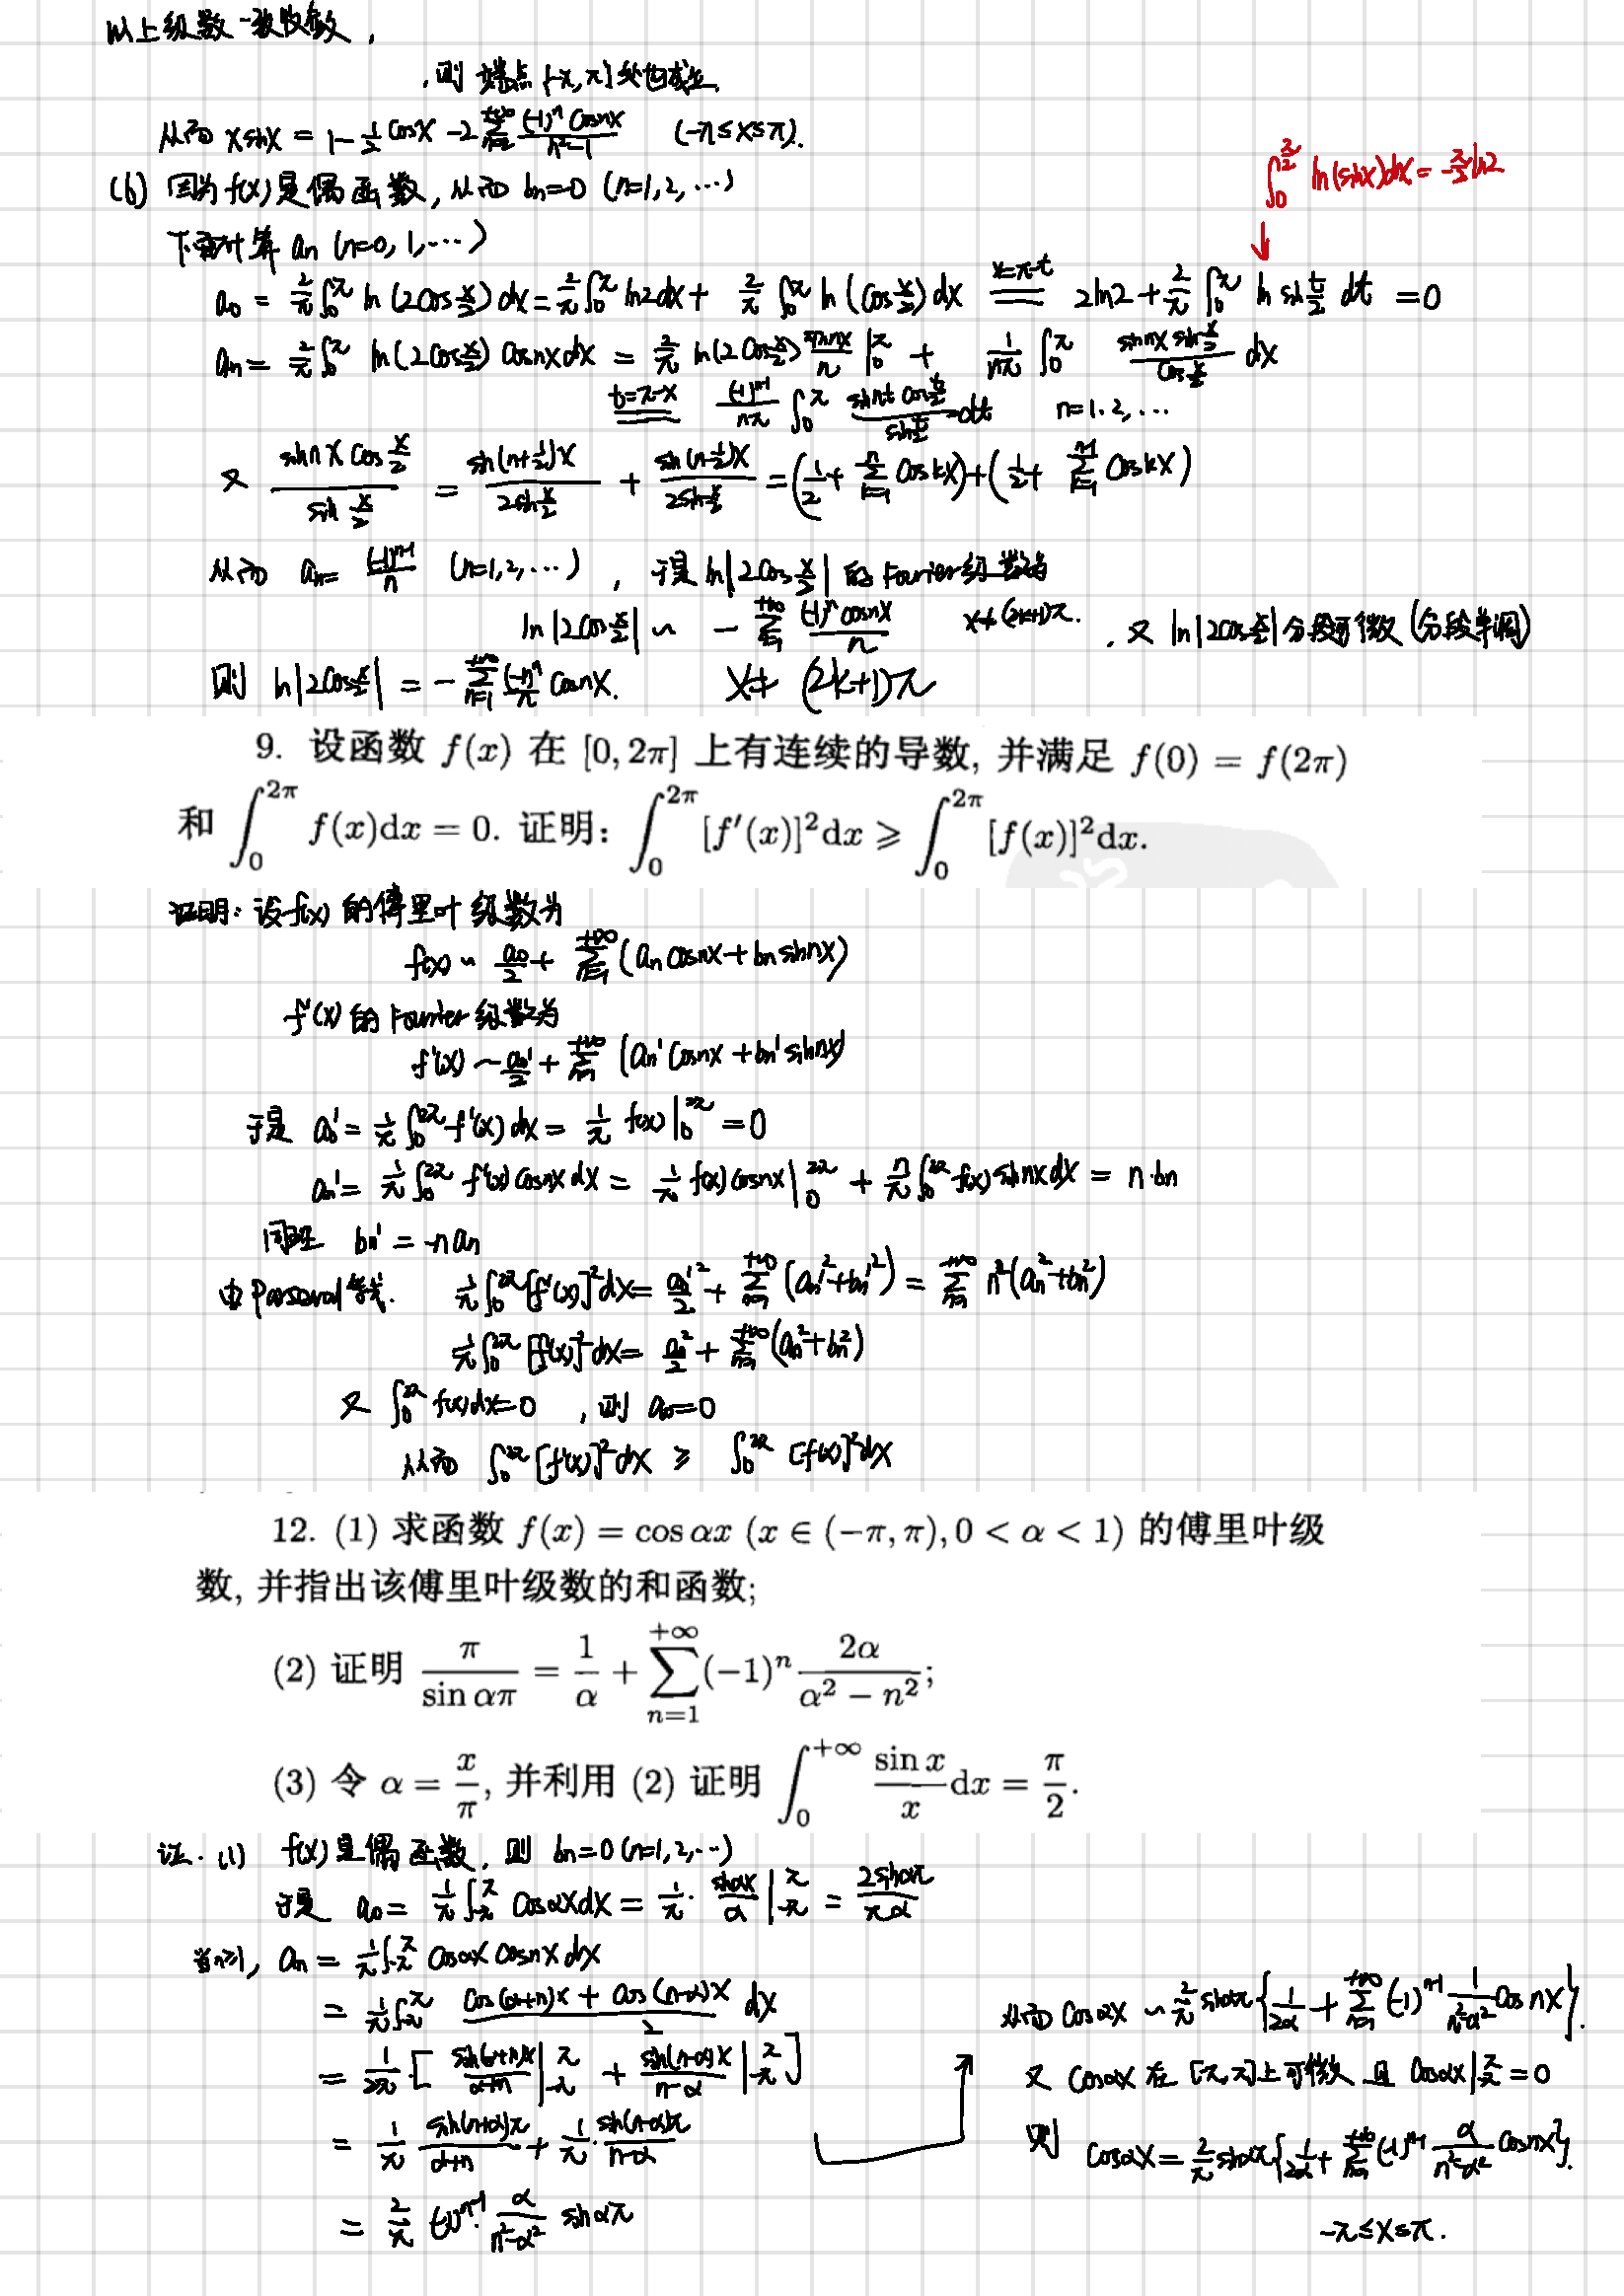 以上级数一致收敛,
,则 端点{-π,π}处也成立,
从而 x sinx = 1-\frac{1}{2}cosx -2\sum_{n=2}^{+∞}\frac{(-1)^n cosnx}{n^2-1} (-π≤x≤π).
\int_0^{\frac{π}{2}} ln(sinx)dx = -\frac{π}{2}ln2
(6) 因为f(x)是偶函数, 从而 bn=0 (n=1,2,…)
下面计算 an (n=0,1,…)
a_0 = \frac{2}{π}\int_0^π ln(2cos\frac{x}{2})dx = \frac{2}{π}\int_0^π ln2dx + \frac{2}{π}\int_0^π ln(cos\frac{x}{2})dx \xlongequal{x=π-t} 2ln2 + \frac{2}{π}\int_0^π ln sin\frac{t}{2} dt = 0
a_n = \frac{2}{π}\int_0^π ln(2cos\frac{x}{2})cosnxdx = \frac{2}{π} ln(2cos\frac{x}{2})\frac{sinnx}{n}|_0^π + \frac{1}{nπ}\int_0^π \frac{sinnx sin\frac{x}{2}}{cos\frac{x}{2}}dx
\xlongequal{t=π-x} \frac{(-1)^{n-1}}{nπ}\int_0^π \frac{sinnt cos\frac{t}{2}}{sin\frac{t}{2}}dt n=1.2,…
又 \frac{sinnx cos\frac{x}{2}}{sin\frac{x}{2}} = \frac{sin(n+\frac{1}{2})x}{2sin\frac{x}{2}} + \frac{sin(n-\frac{1}{2})x}{2sin\frac{x}{2}} = (\frac{1}{2}+\sum_{k=1}^{n}coskx)+(\frac{1}{2}+\sum_{k=1}^{n-1}coskx)
从而 a_n = \frac{(-1)^{n-1}}{n} (n=1,2,…) , 于是 ln|2cos\frac{x}{2}| 的Fourier级数为
ln|2cos\frac{x}{2}| ~ -\sum_{n=1}^{+∞}\frac{(-1)^n cosnx}{n} x≠(2k+1)π. , 又 ln|2cos\frac{x}{2}|分段可微(分段单调)
则 ln|2cos\frac{x}{2}| = -\sum_{n=1}^{+∞}\frac{(-1)^n}{n}cosnx. x≠(2k+1)π
9. 设函数 f(x) 在 [0, 2π] 上有连续的导数, 并满足 f(0) = f(2π)
和 \int_0^{2π} f(x)dx = 0. 证明: \int_0^{2π} [f'(x)]^2dx ⩾ \int_0^{2π} [f(x)]^2dx.
证明: 设f(x)的傅里叶级数为
f(x) ~ \frac{a_0}{2} + \sum_{n=1}^{+∞}(a_n cosnx + b_n sinnx)
f'(x)的Fourier级数为
f'(x) ~ \frac{a_0'}{2} + \sum_{n=1}^{+∞}(a_n' cosnx + b_n' sinnx)
于是 a_0' = \frac{1}{π}\int_0^{2π} f'(x)dx = \frac{1}{π} f(x)|_0^{2π} = 0
a_n' = \frac{1}{π}\int_0^{2π} f'(x)cosnxdx = \frac{1}{π} f(x)cosnx|_0^{2π} + \frac{n}{π}\int_0^{2π} f(x)sinnxdx = n·b_n
同理 b_n' = -na_n
由Parseval等式. \frac{1}{π}\int_0^{2π}[f'(x)]^2dx = \frac{a_0'^2}{2} + \sum_{n=1}^{+∞}(a_n'^2+b_n'^2) = \sum_{n=1}^{+∞} n^2(a_n^2+b_n^2)
\frac{1}{π}\int_0^{2π}[f(x)]^2dx = \frac{a_0^2}{2} + \sum_{n=1}^{+∞}(a_n^2+b_n^2)
又 \int_0^{2π} f(x)dx=0 , 则 a_0=0
从而 \int_0^{2π}[f'(x)]^2dx ≥ \int_0^{2π}[f(x)]^2dx
12. (1) 求函数 f(x) = cos αx (x ∈ (−π, π), 0 < α < 1) 的傅里叶级
数, 并指出该傅里叶级数的和函数;
(2) 证明 \frac{π}{sin απ} = \frac{1}{α} + \sum_{n=1}^{+∞}(−1)^n \frac{2α}{α^2 − n^2};
(3) 令 α = \frac{x}{π}, 并利用 (2) 证明 \int_0^{+∞} \frac{sin x}{x}dx = \frac{π}{2}.
证. (1) f(x)是偶函数, 则 bn=0 (n=1,2,…)
于是 a_0 = \frac{1}{π}\int_{-π}^{π} cosαxdx = \frac{1}{π}·\frac{sinαx}{α}|_{-π}^{π} = \frac{2sinαπ}{πα}
当n≥1, a_n = \frac{1}{π}\int_{-π}^{π} cosαx cosnx dx
= \frac{1}{π}\int_{-π}^{π} \frac{cos(α+n)x + cos(n-α)x}{2} dx
= \frac{1}{2π}[\frac{sin(α+n)x}{α+n}|_{-π}^{π} + \frac{sin(n-α)x}{n-α}|_{-π}^{π}]
= \frac{1}{π}\frac{sin(n+α)π}{α+n} + \frac{1}{π}·\frac{sin(n-α)π}{n-α}
= \frac{2}{π}(-1)^{n-1}·\frac{α}{n^2-α^2} sinαπ
从而 cosαx ~ \frac{2}{π}sinαπ{\frac{1}{2α} + \sum_{n=1}^{+∞}(-1)^{n-1}\frac{1}{n^2-α^2}cosnx}.
又 cosαx 在[-π,π]上可微 且 cosαx|_{-π}^{π} = 0
则 cosαx = \frac{2}{π}sinαπ{\frac{1}{2α} + \sum_{n=1}^{+∞}(-1)^{n-1}\frac{α}{n^2-α^2}cosnx}.
-π≤x≤π.